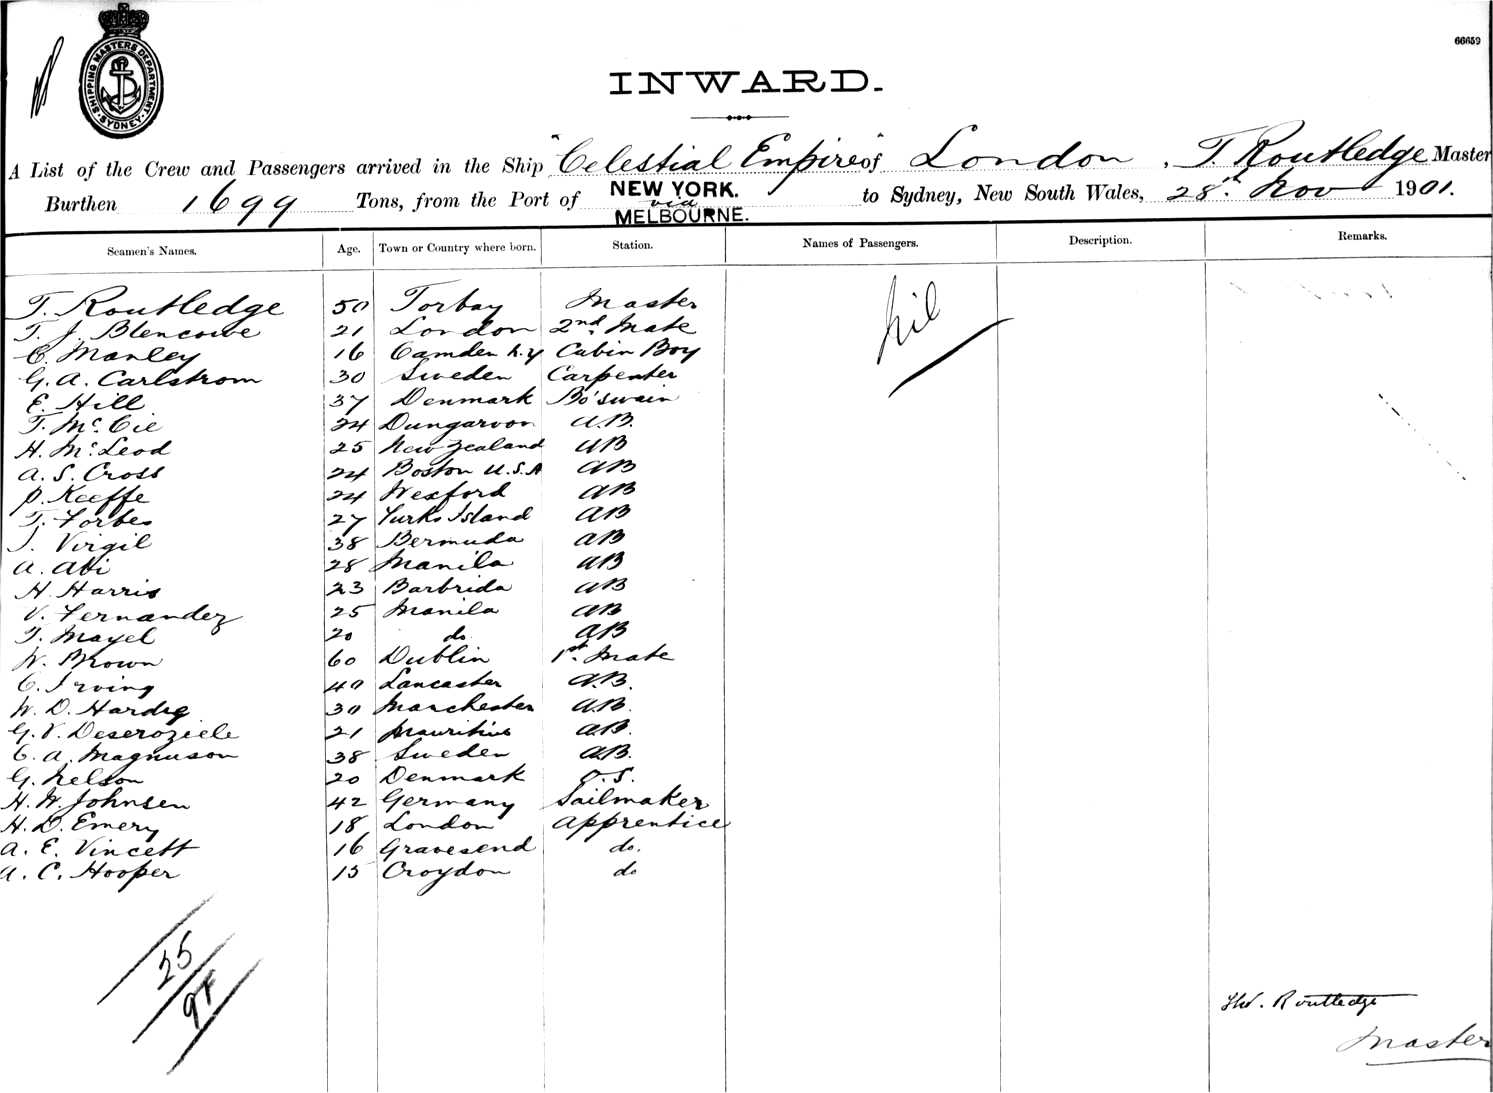 66659
SHIPPING MASTERS DEPARTMENT
SYDNEY
INWARD.
A List of the Crew and Passengers arrived in the Ship "Celestial Empire" of London, T. Routledge Master
Burthen 1699 Tons, from the Port of NEW YORK. via MELBOURNE. to Sydney, New South Wales, 28th Nov 1901.
Seamen's Names. Age. Town or Country where born. Station. Names of Passengers. Description. Remarks.
nil
T. Routledge 50 Torbay Master
T. J. Blencowe 21 London 2nd Mate
C. Manley 16 Camden N.Y Cabin Boy
G. A. Carlstrom 30 Sweden Carpenter
E. Hill 37 Denmark Bo'swain
T. McCie 24 Dungarvon A.B.
H. McLeod 25 New Zealand AB
A. S. Cross 24 Boston U.S.A AB
P. Keeffe 24 Wexford AB
T. Forbes 27 Turks Island AB
J. Virgil 38 Bermuda AB
A. Abi 28 Manila AB
H. Harris 23 Barbrida AB
V. Fernandez 25 Manila AB
T. Mayel 20 do AB
W. Brown 60 Dublin 1st Mate
C. Irving 40 Lancaster A.B.
W. D. Hardie 30 Manchester A.B.
G. V. Deseroziele 21 Mauritius A.B.
C. A. Magnuson 38 Sweden A.B.
G. Nelson 20 Denmark O.S.
H. W. Johnsen 42 Germany Sailmaker
H. D. Emery 18 London Apprentice
A. E. Vincett 16 Gravesend do.
A. C. Hooper 15 Croydon do
25
9F
Thos. Routledge
Master